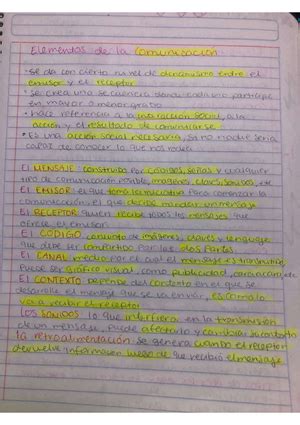 Elementos de la Comunicación
- se da con cierto nivel de dinamismo entre el
emisor y el receptor
- se crea una secuencia donde cada uno participa
en mayor o menor grado
- hace referencia a la interacción social, a la
acción y el resultado de comunicarse
- Es una acción social necesaria, si no nadie seria
capaz de conocer lo que nos rodea
El MENSAJE: construido por códigos, señas y cualquier
tipo de comunicación posible, imágenes, claves, signos, etc
El EMISOR: el que toma la iniciativa para comenzar la
comunicación, el que decide mandar un mensaje
El RECEPTOR: quien recibe todos los mensajes que
ofrece el emisor
El CÓDIGO: conjunto de imágenes, claves y lenguaje
que debe ser compartido por las dos partes
El CANAL: medio por el cual el mensaje es transmitido,
Puede ser gráfico, visual, como publicidad,
El CONTEXTO: depende del contexto en el que se
desarrolle el mensaje que se va enviar, es como lo
va a recibir el receptor
Los SONIDOS: lo que interfiera en la transmisión
de un mensaje, puede afectarlo y cambiar su contexto
La retroalimentación: se genera cuando el receptor
devuelve información luego de que recibió el mensaje